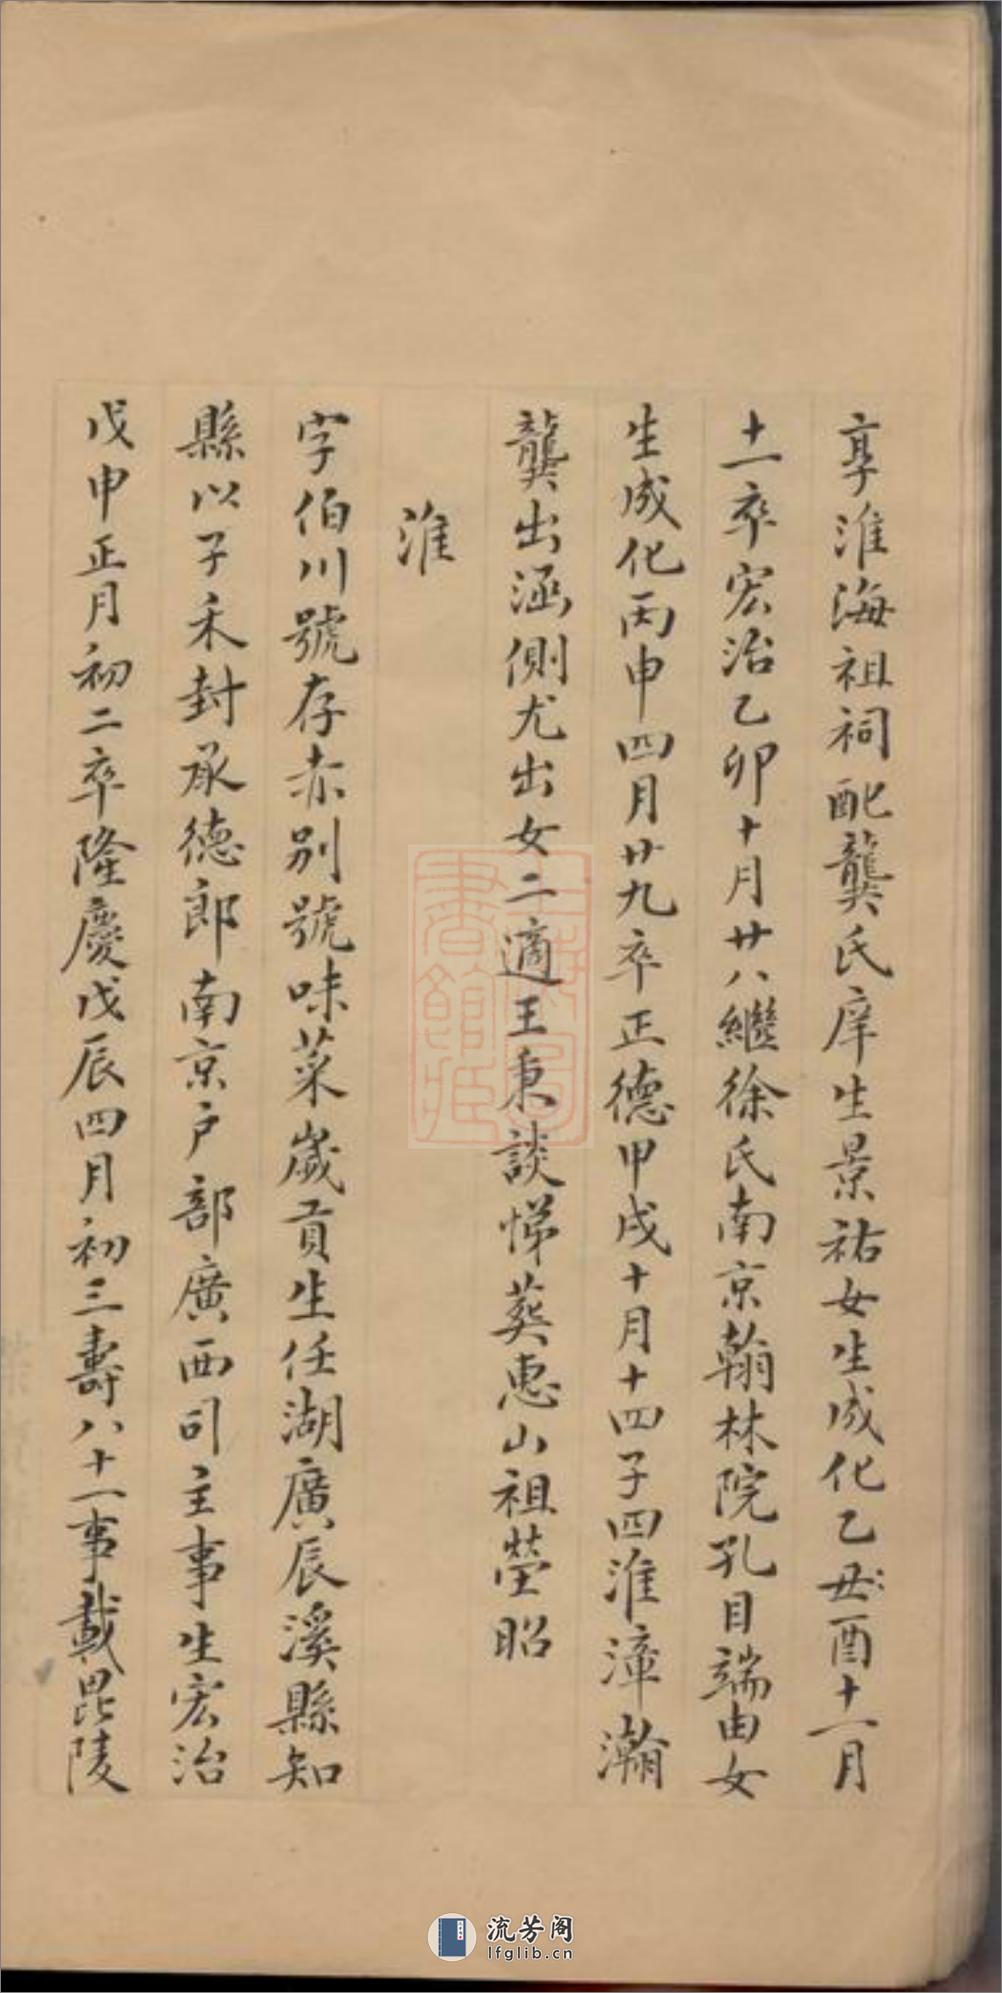 享淮海祖祠配龔氏庠生景祐女生成化乙丑酉十一月
十一卒宏治乙卯十月廿八繼徐氏南京翰林院孔目端由女
生成化丙申四月廿九卒正德甲戌十月十四子四淮漳瀚
龔出涵側尤出女二適王秉談悌葬惠山祖塋昭
淮
字伯川號存赤別號味菜歲貢生任湖廣辰溪縣知
縣以子禾封承德郎南京戶部廣西司主事生宏治
戊申正月初二卒隆慶戊辰四月初三壽八十一事載毘陵
流芳阁
lfglib.cn